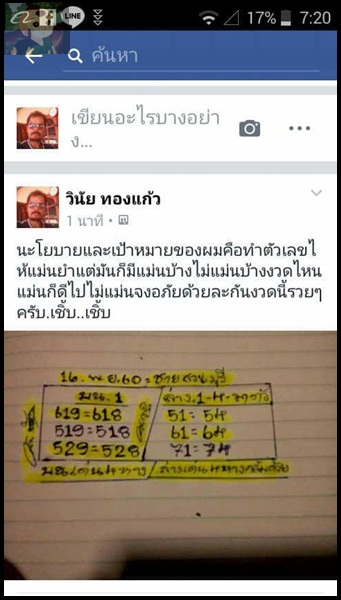 LINE
17% 7:20
ค้นหา
เขียนอะไรบางอย่า
ง...
วินัย ทองแก้ว
1 นาที
นะโยบายและเป้าหมายของผมคือทำตัวเลขใ
ห้แม่นยำแต่มันก็มีแม่นบ้างไม่แม่นบ้างงวดไหน
แม่นก็ดีไปไม่แม่นจงอภัยด้วยละกันงวดนี้รวยๆ
ครับ.เชิ้บ..เชิ้บ
16. พ.ย. 60 = ชาย สวนบุรี
บน. 1 ล่าง. 1-4
619=618 51= 54
519=518 61= 64
529=528 71= 74
บนเด่น ล่างเด่น